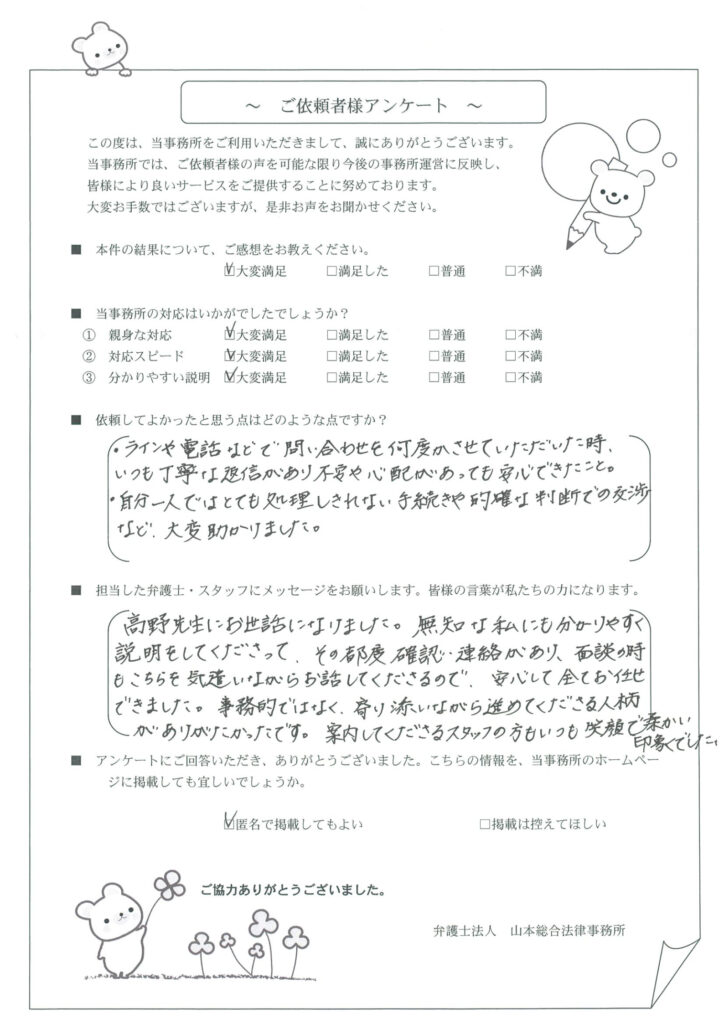 ～ ご依頼者様アンケート ～
この度は、当事務所をご利用いただきまして、誠にありがとうございます。
当事務所では、ご依頼者様の声を可能な限り今後の事務所運営に反映し、
皆様により良いサービスをご提供することに努めております。
大変お手数ではございますが、是非お声をお聞かせください。
■ 本件の結果について、ご感想をお教えください。
☑大変満足 □満足した □普通 □不満
■ 当事務所の対応はいかがでしたでしょうか？
① 親身な対応 ☑大変満足 □満足した □普通 □不満
② 対応スピード ☑大変満足 □満足した □普通 □不満
③ 分かりやすい説明 ☑大変満足 □満足した □普通 □不満
■ 依頼してよかったと思う点はどのような点ですか？
・ラインや電話などで問い合わせを何度かさせていただいた時、
いつも丁寧な返信があり不安や心配があっても安心できたこと。
・自分一人ではとても処理しきれない手続きや的確な判断での交渉
など、大変助かりました。
■ 担当した弁護士・スタッフにメッセージをお願いします。皆様の言葉が私たちの力になります。
高野先生にお世話になりました。無知な私にも分かりやすく
説明をしてくださって、その都度確認・連絡があり、面談の時
もこちらを気遣いながらお話してくださるので、安心して全てお任せ
できました。事務的ではなく、寄り添いながら進めてくださる人柄
がありがたかったです。案内してくださるスタッフの方もいつも笑顔で柔かい
印象でした。
■ アンケートにご回答いただき、ありがとうございました。こちらの情報を、当事務所のホームペー
ジに掲載しても宜しいでしょうか。
☑匿名で掲載してもよい □掲載は控えてほしい
ご協力ありがとうございました。
弁護士法人 山本総合法律事務所